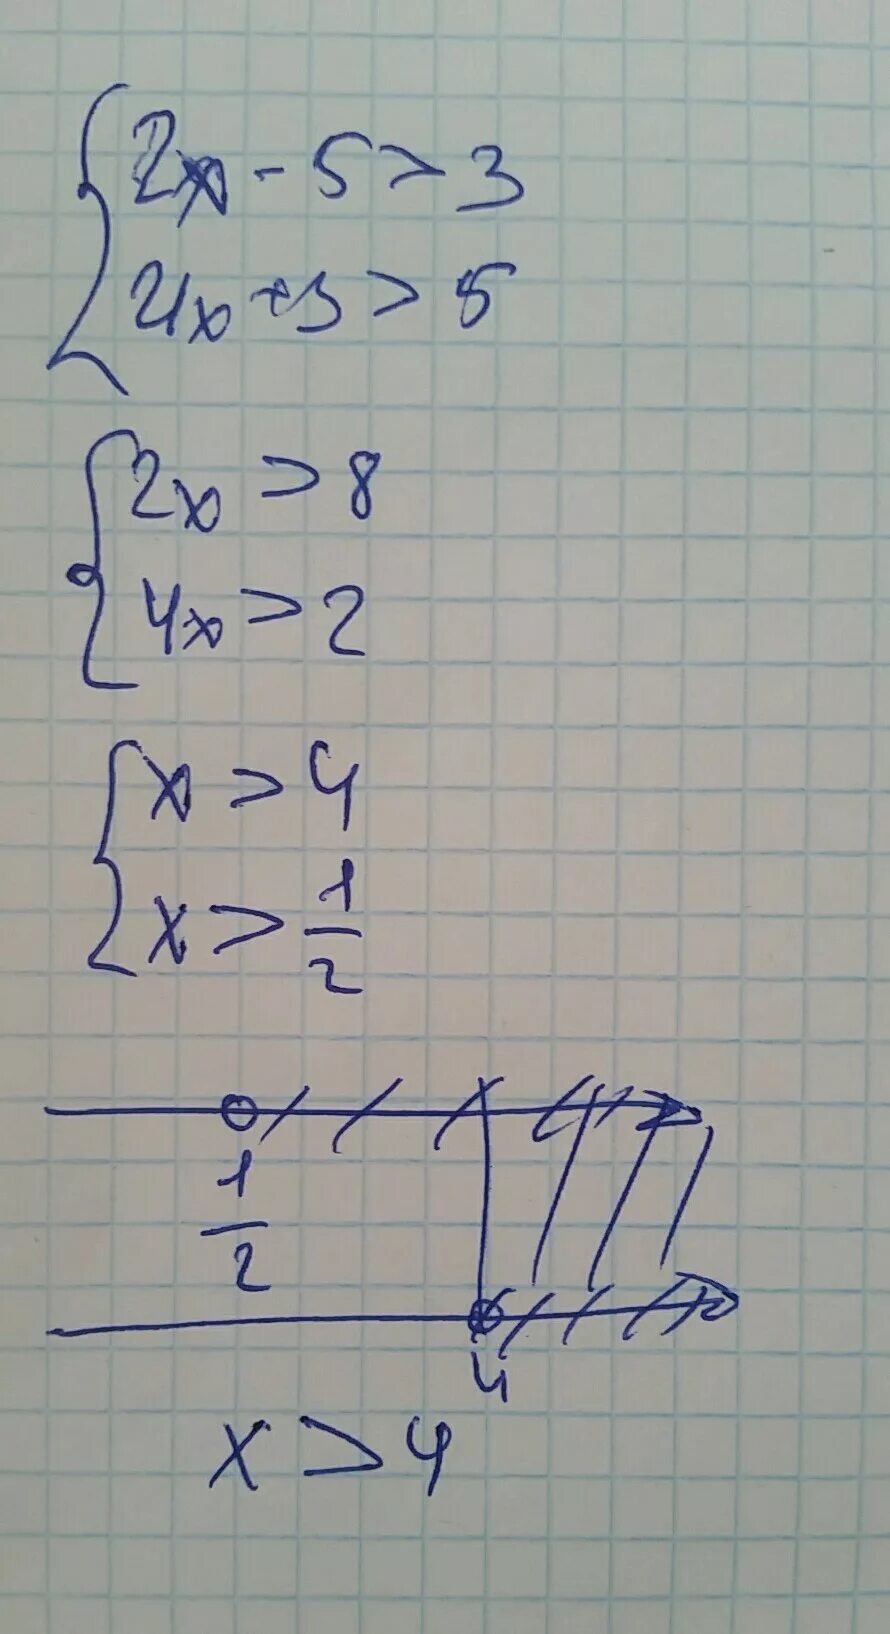 2x - 5 > 3
4x + 3 > 5
2x > 8
4x > 2
x > 4
x > 1/2
1/2
4
x > 4